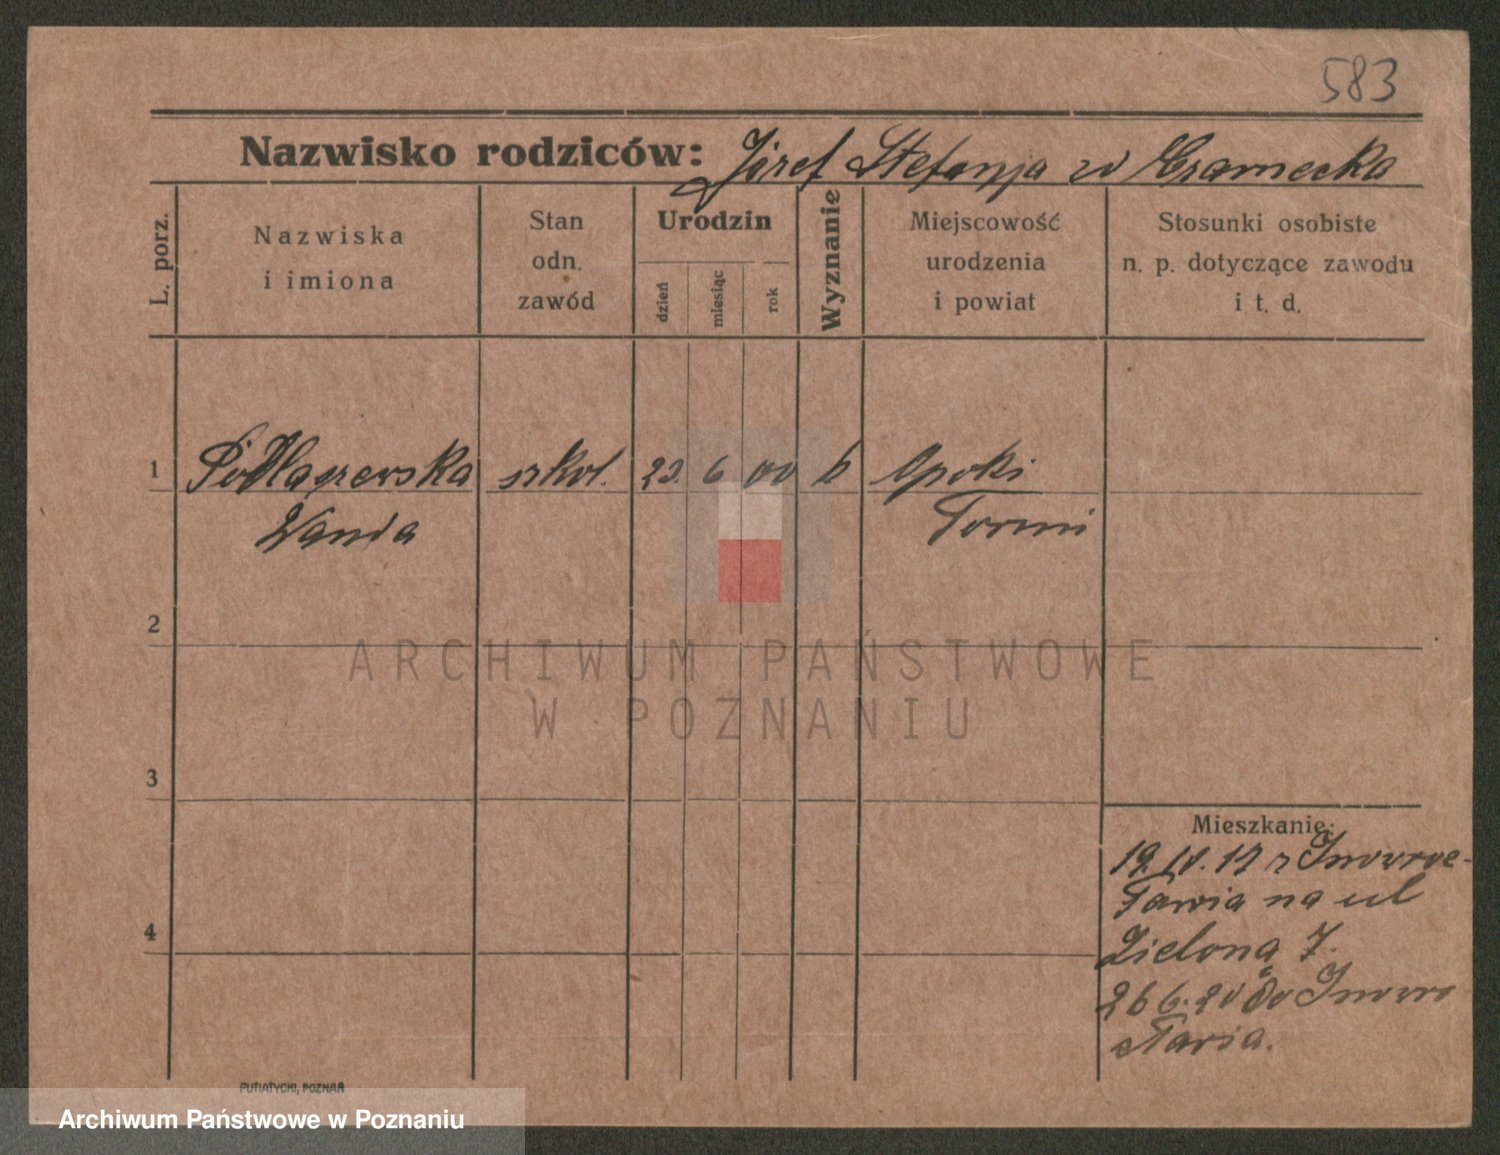 583
Nazwisko rodziców: Józef Stefanja zd Czarnecka
L. porz.
Nazwiska i imiona
Stan odn. zawód
Urodzin
dzień
miesiąc
rok
Wyznanie
Miejscowość urodzenia i powiat
Stosunki osobiste n. p. dotyczące zawodu i t. d.
1 Podlaszewska szkol. 6 00 k Opoki
Wanda
2
ARCHIWUM PAŃSTWOWE
W POZNANIU
3
Mieszkanie:
z Inowroc-
ławia na ul
4
Zielona 7.
26 6. 20 do Inowro
cławia.
PUTIATYCKI, POZNAŃ
Archiwum Państwowe w Poznaniu